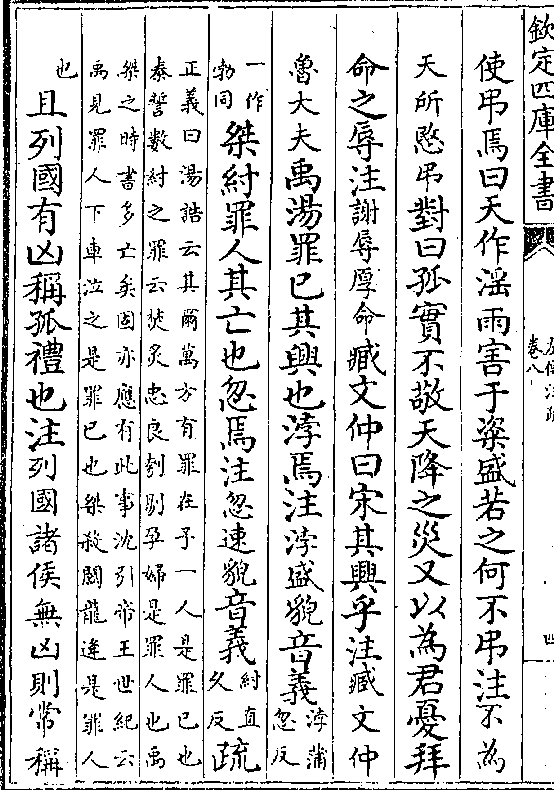 欽定四庫全書
卷八
使弔焉曰天作淫雨害于粢盛若之何不弔注不為
天所愍弔對曰孤實不敬天降之災又以為君憂拜
命之辱注謝辱厚命臧文仲曰宋其興乎注臧文仲
魯大夫禹湯罪已其興也浡焉注浡盛貌音義浡蒲忽反
一作勃同桀紂罪人其亡也忽焉注忽速貌音義紂直久反疏
正義曰湯誥云其爾萬方有罪在予一人是罪已也
泰誓數紂之罪云焚炙忠良刳剔孕婦是罪人也禹
桀之時書多亡矣固亦應有此事沈引帝王世紀云
禹見罪人下車泣之是罪已也桀殺關龍逄是罪人
也且列國有凶稱孤禮也注列國諸侯無凶則常稱